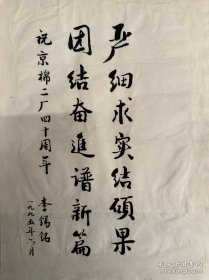 严细求实结硕果
团结奋進谱新篇
祝京棉二厂四十周年
李锡铭
一九九五年六月